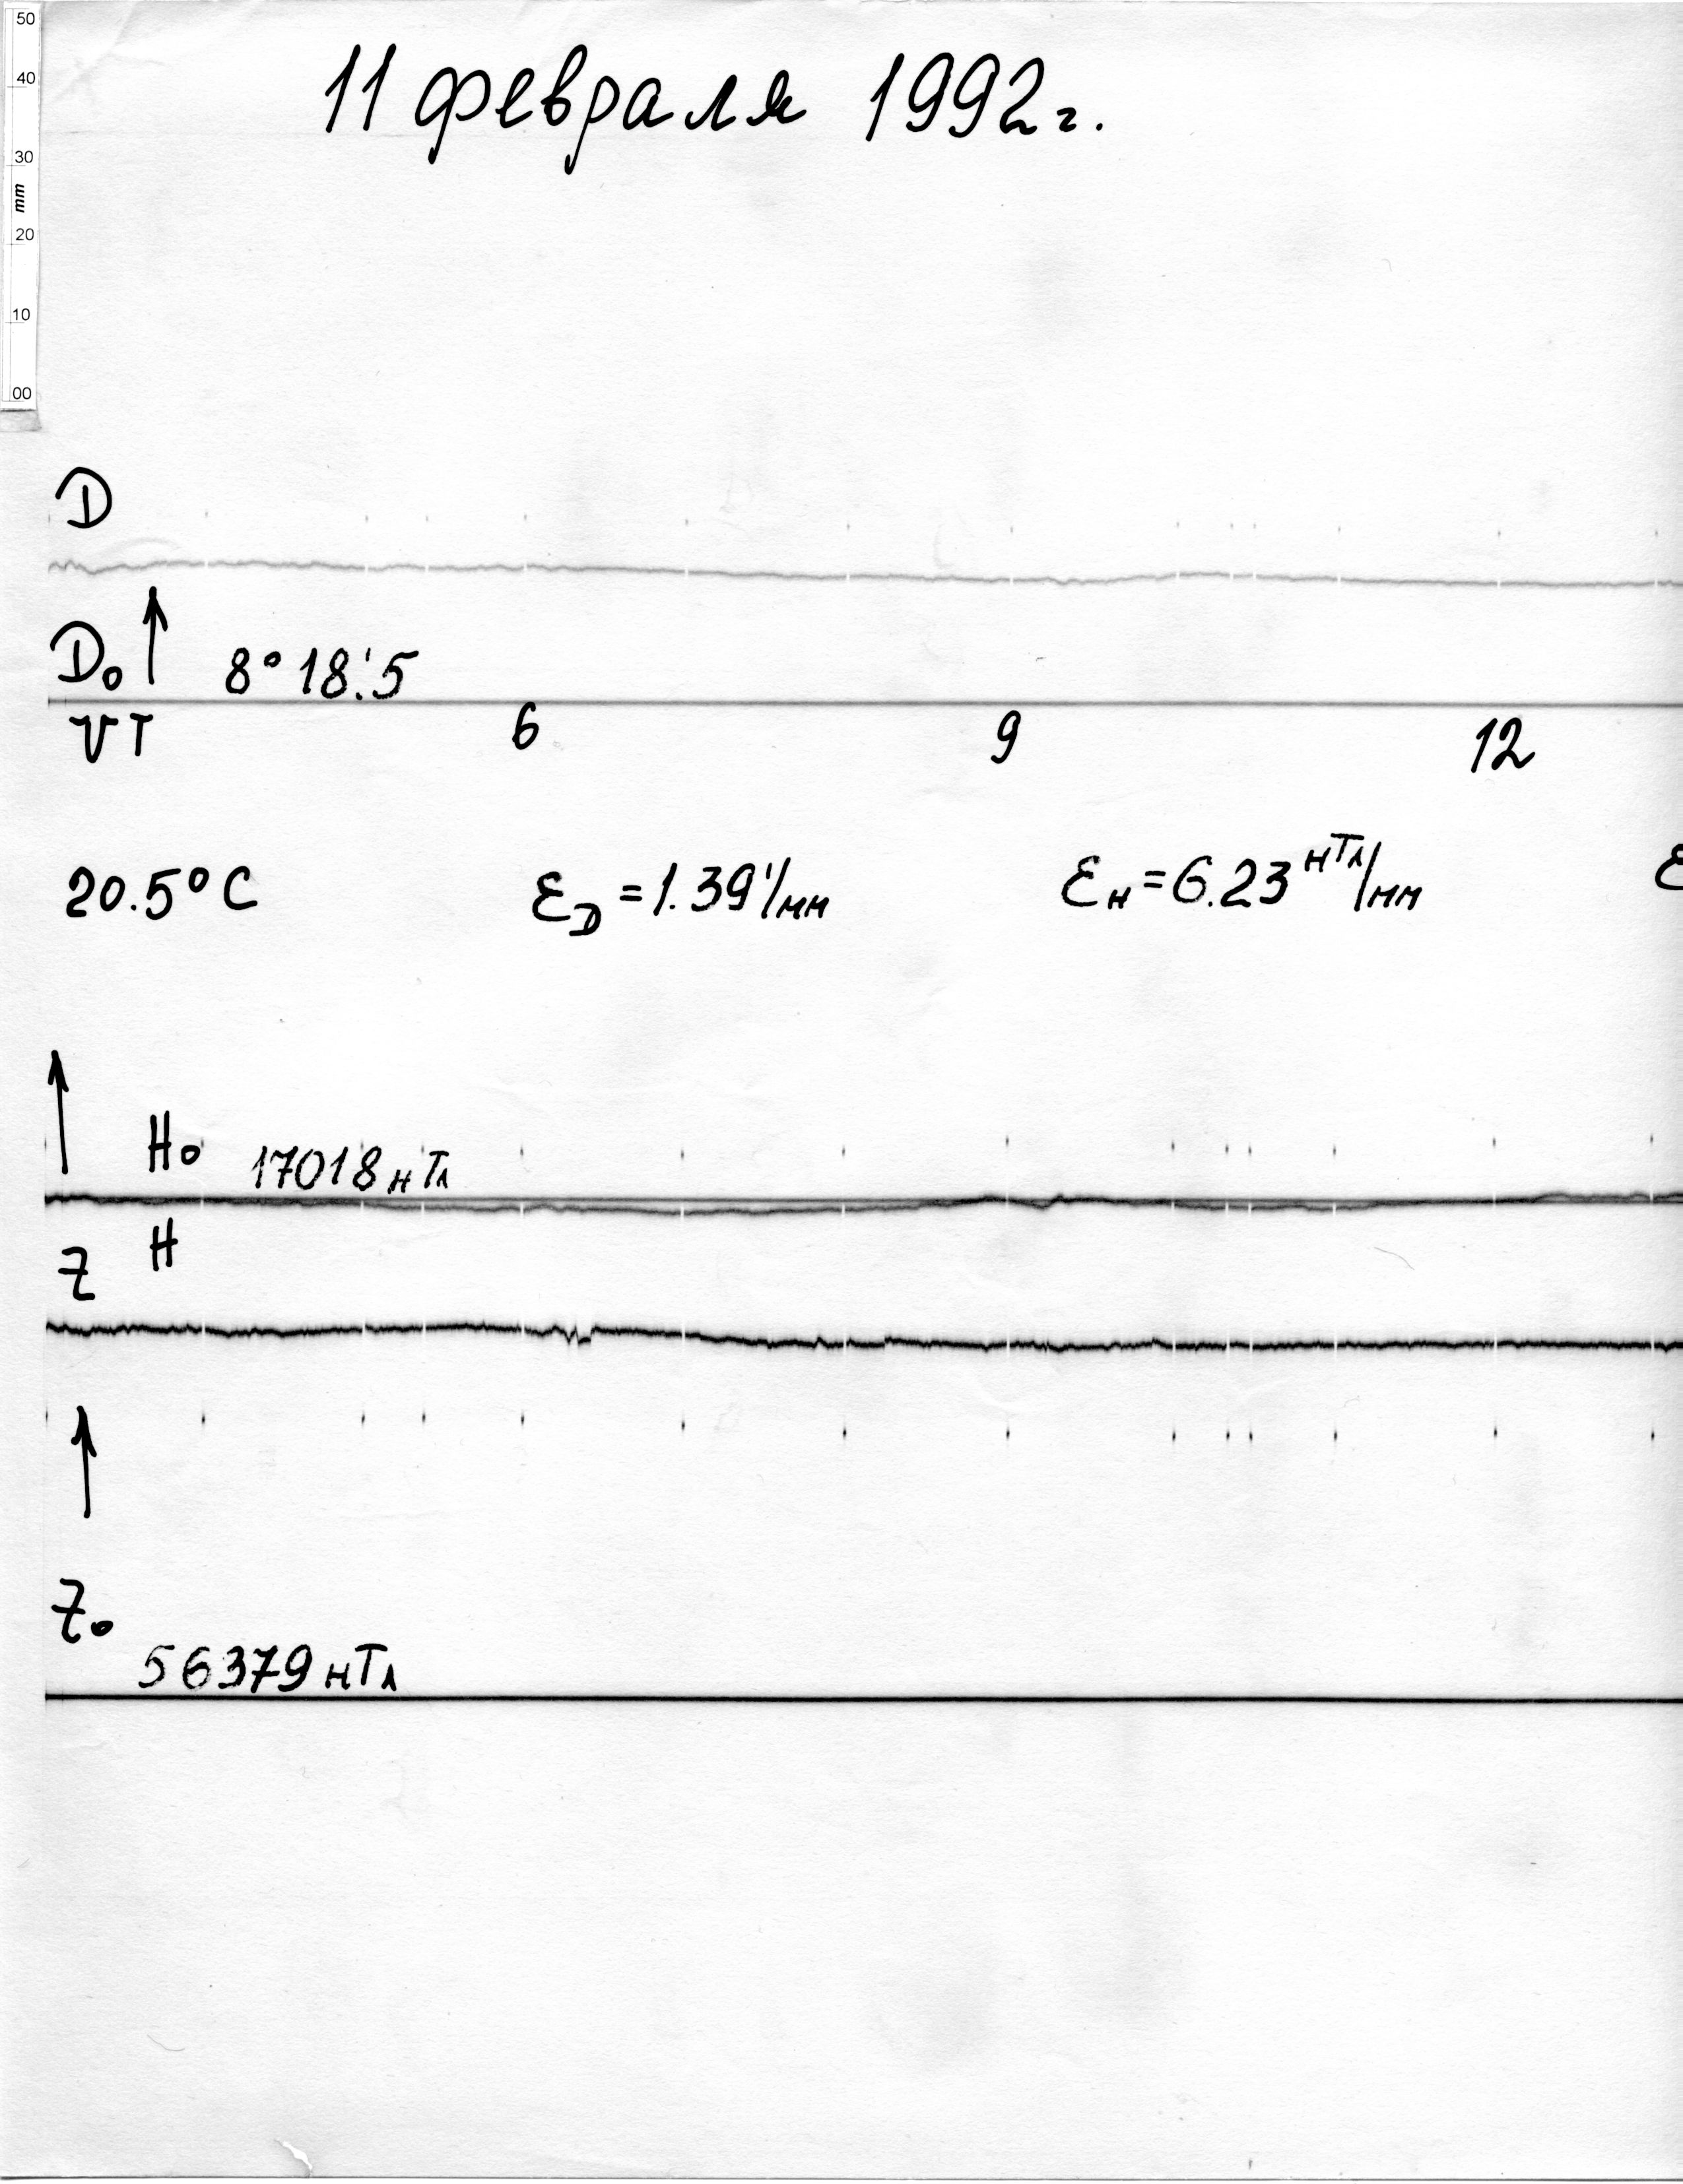 50
40
30
mm
20
10
00
11 февраля 1992 г.
D
D₀ 8° 18.'5
UT 6 9 12
20.5°C ε_D = 1.39'/мм ε_H = 6.23 нТл/мм ε
H₀ 17018 нТл
H
Z
Z₀
56379 нТл